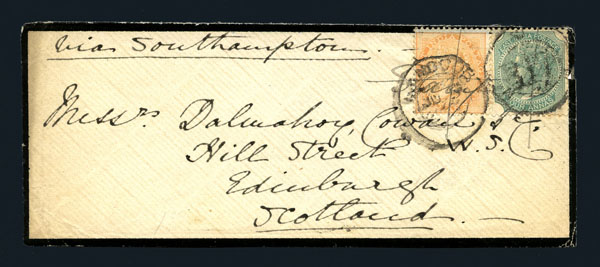 via Southampton.
Messrs Dalmahoy, Cowan &c.
Hill Street W.S.
Edinburgh
Scotland.